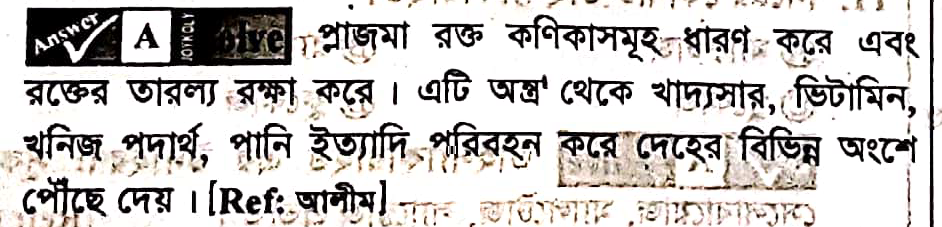 Answer A JOYKOLY Solve প্লাজমা রক্ত কণিকাসমূহ ধারণ করে এবং
রক্তের তারল্য রক্ষা করে । এটি অন্ত্র থেকে খাদ্যসার, ভিটামিন,
খনিজ পদার্থ, পানি ইত্যাদি পরিবহন করে দেহের বিভিন্ন অংশে
পৌঁছে দেয় । [Ref: আলীম]